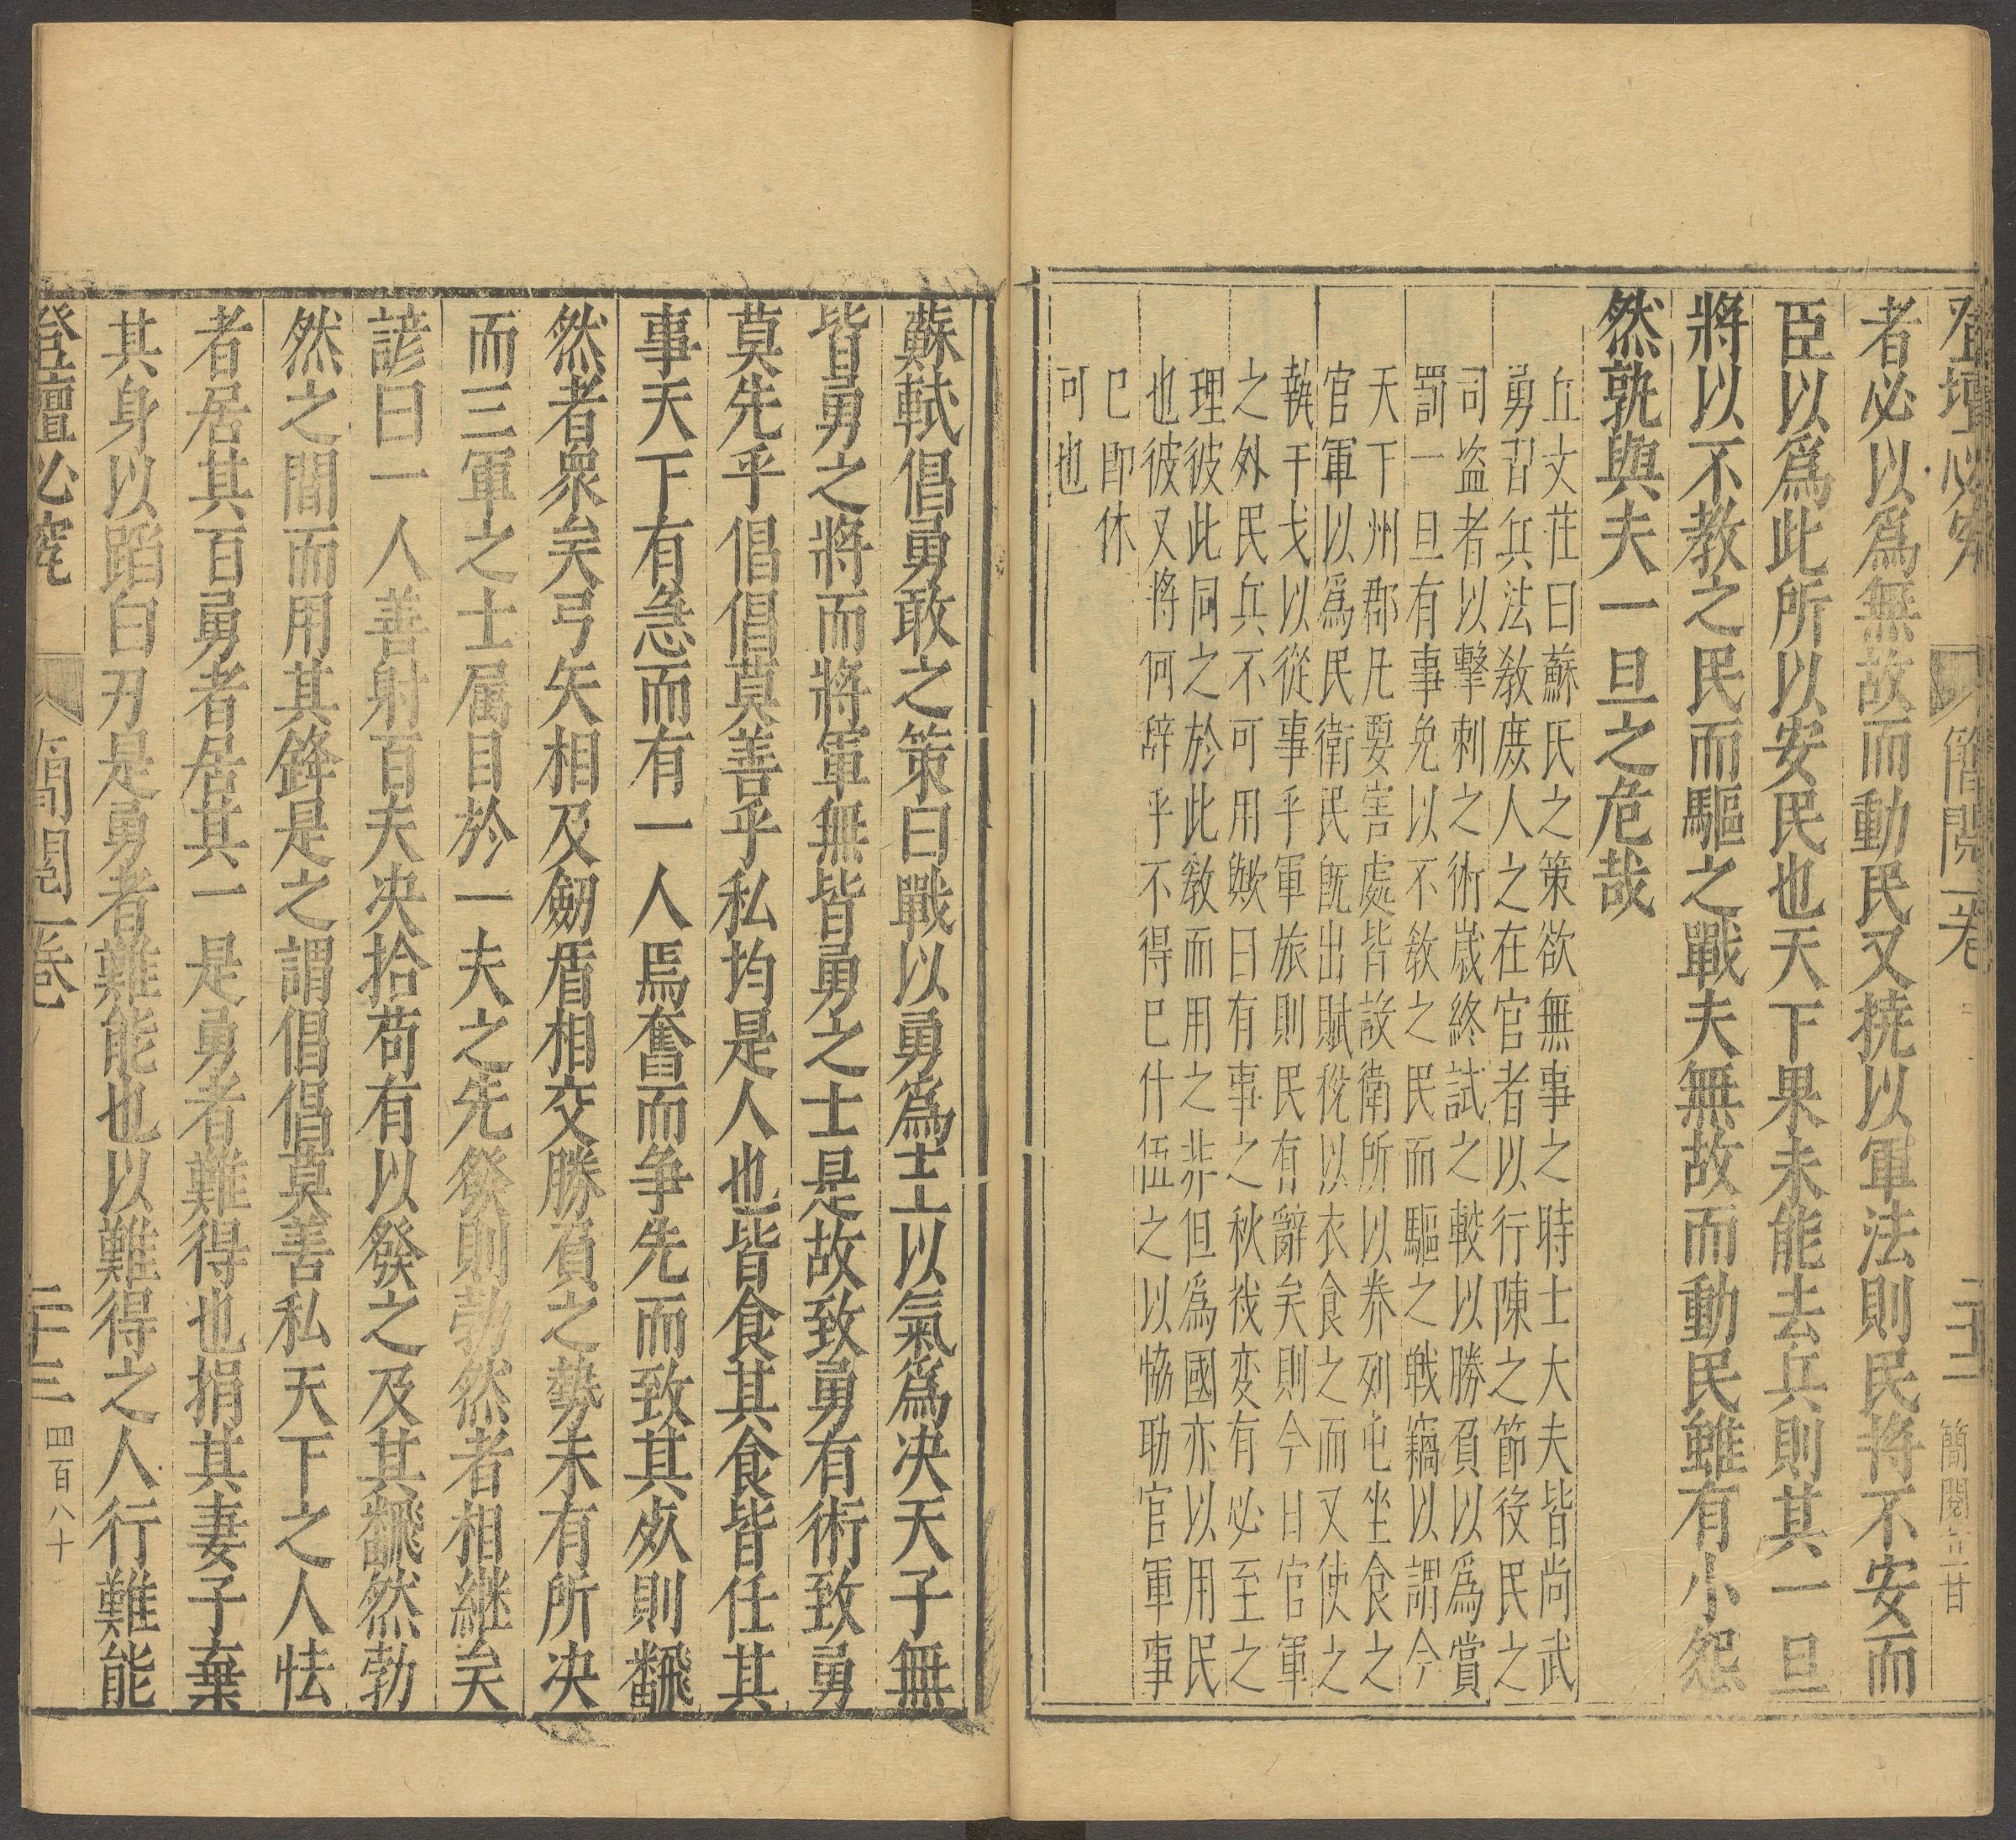 登壇必究 簡閱一卷 二十二 簡閱五廿
者必以爲無故而動民又撓以軍法則民將不安而
臣以爲此所以安民也天下果未能去兵則其一旦
將以不教之民而驅之戰夫無故而動民雖有小怨
然孰與夫一旦之危哉
丘文莊曰蘇氏之策欲無事之時士大夫皆尚武
勇習兵法教庶人之在官者以行陳之節役民之
司盗者以擊刺之術歲終試之較以勝負以爲賞
罰一旦有事免以不教之民而驅之戰竊以謂今
天下州郡凡要害處皆設衛所以养列屯坐食之
官軍以爲民衛民旣出賦稅以衣食之而又使之
執干戈以從事乎軍旅則民有辭矣則今日官軍
之外民兵不可用歟曰有事之秋伐变有必至之
理彼此同之於此教而用之非但爲國亦以用民
也彼又將何辞乎不得已什伍之以恊助官軍事
已即休
可也
蘇軾倡勇敢之策曰戰以勇爲主以氣爲决天子無
皆勇之將而將軍無皆勇之士是故致勇有術致勇
莫先乎倡倡莫善乎私均是人也皆食其食皆任其
事天下有急而有一人焉奮而争先而致其死則翻
然者衆矣弓矢相及劒盾相交勝負之勢未有所决
而三軍之士属目於一夫之先發則勃然者相継矣
諺曰一人善射百夫决拾苟有以發之及其翻然勃
然之間而用其鋒是之謂倡倡莫善私天下之人怯
者居其百勇者居其一是勇者難得也捐其妻子棄
其身以蹈白刃是勇者難能也以難得之人行難能
登壇必究 簡閱一卷 二十三 四百八十